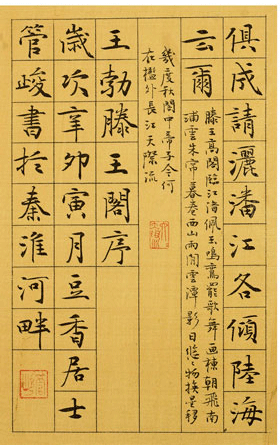 俱成請灑潘江各傾陸海
云爾
滕王高閣臨江渚佩玉鳴鸞罷歌舞画棟朝飛南
浦雲朱帘暮卷西山雨閒雲潭影日悠々物換星移
幾度秋閣中帝子今何
在檻外長江天際流
王勃滕王閣序
嵗次辛卯寅月豆香居士
管峻書扵秦淮河畔